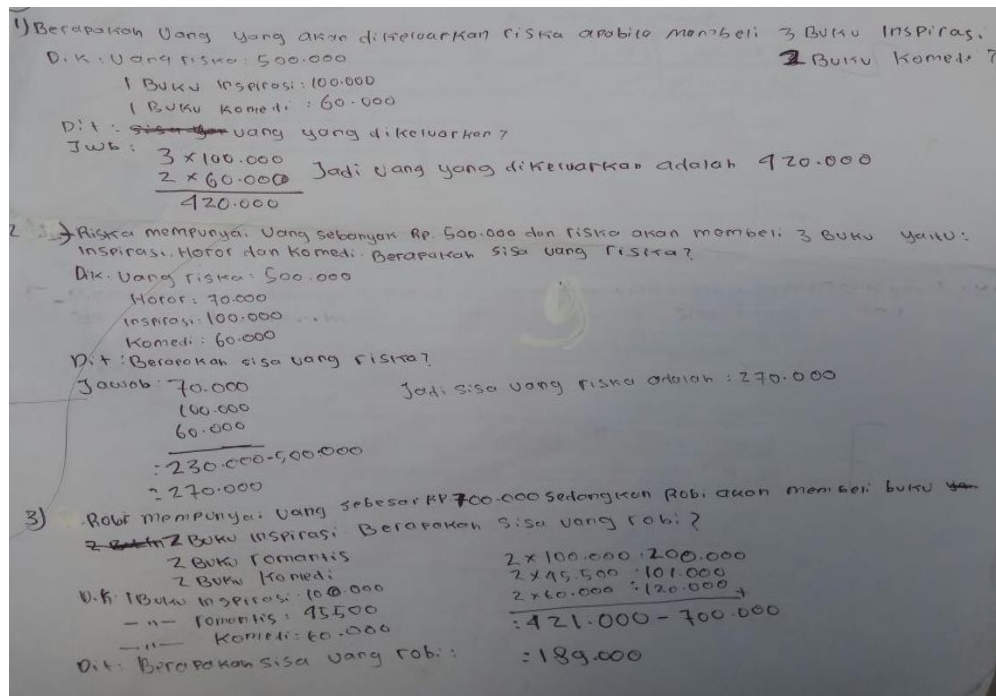 1) Berapakah Uang yang akan dikeluarkan riska apabila membeli 3 Buku Inspirasi
2 Buku Komedi ?
Dik : Uang riska : 500.000
1 Buku Inspirasi : 100.000
1 Buku Komedi : 60.000
Dit : uang yang dikeluarkan ?
Jwb :
3 x 100.000
2 x 60.000
Jadi uang yang dikeluarkan adalah 420.000
420.000
2 Riska mempunyai Uang sebanyak Rp. 500.000 dan riska akan membeli 3 Buku yaitu :
Inspirasi, Horor dan Komedi. Berapakah sisa uang riska ?
Dik. Uang riska : 500.000
Horor : 70.000
Inspirasi : 100.000
Komedi : 60.000
Dit : Berapakah sisa uang riska ?
Jawab : 70.000
Jadi sisa uang riska adalah : 270.000
100.000
60.000
: 230.000-500.000
= 270.000
3) Robi mempunyai uang sebesar RP 700.000 sedangkan Robi akan membeli buku
2 Buku Inspirasi Berapakah sisa uang robi ?
2 Buku romantis
2 Buku Komedi
Dik 1 Buku Inspirasi : 100.000
-"- romantis : 45500
-"- Komedi : 60.000
Dit : Berapakah sisa uang robi :
2 x 100.000 : 200.000
2 x 45.500 : 101.000
2 x 60.000 : 120.000 +
: 421.000 - 700.000
: 189.000